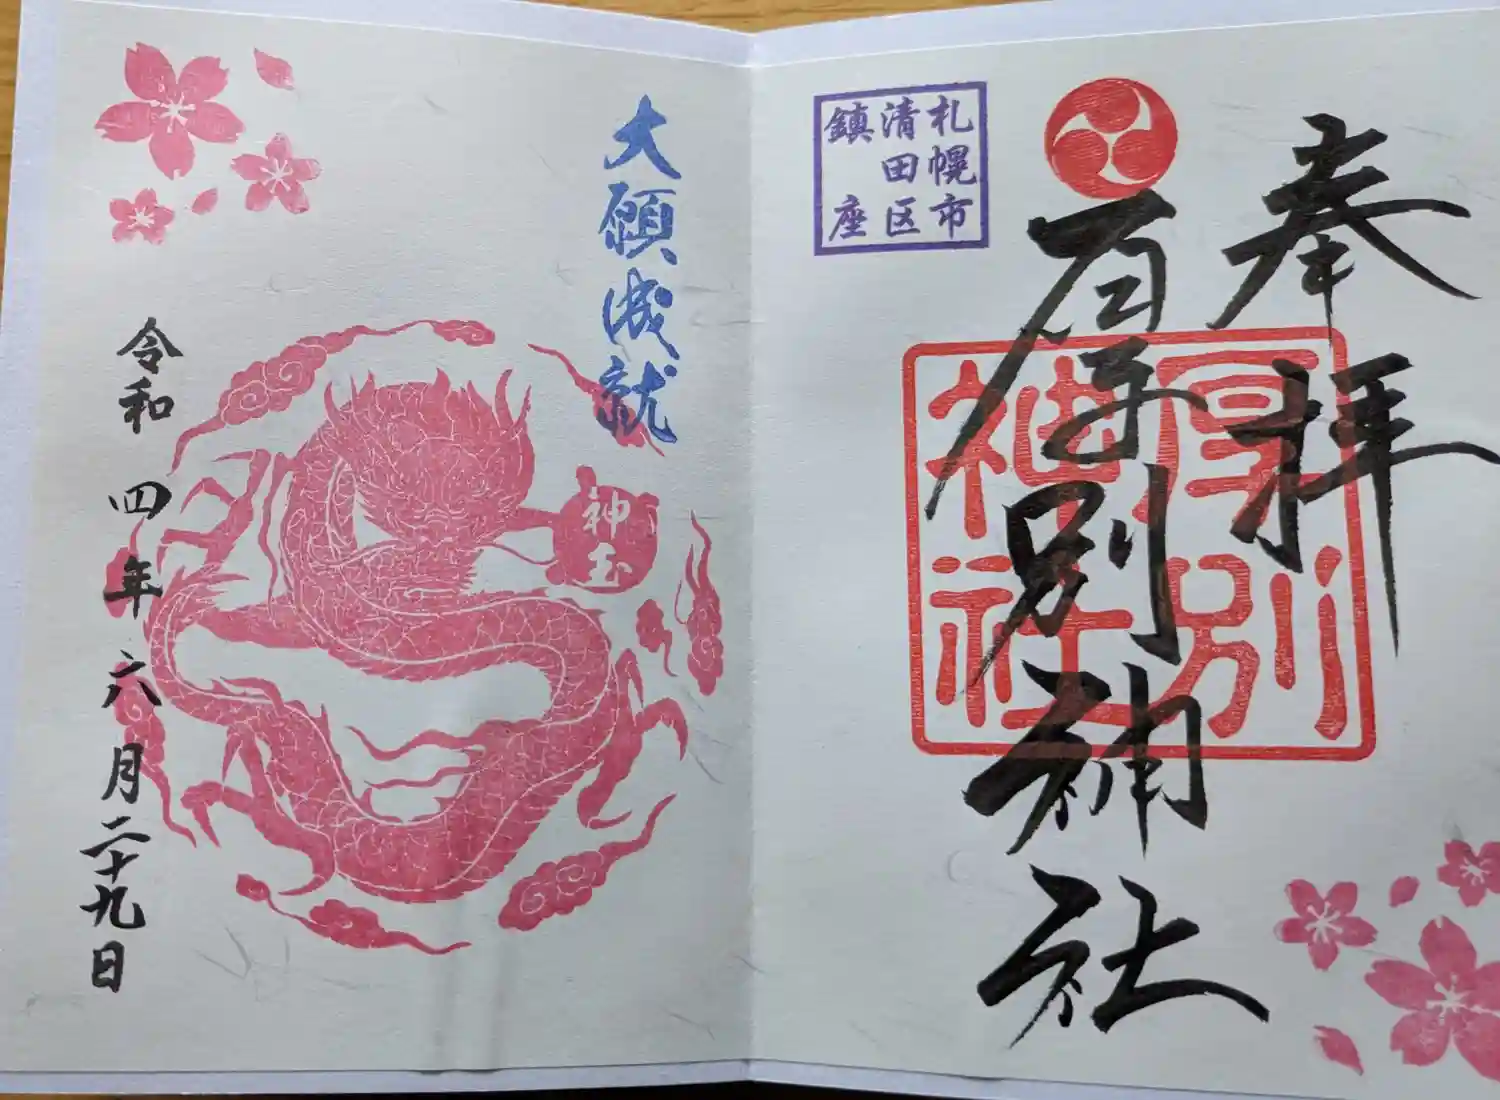 奉拝
厚別神社
厚別
神社
札幌市
清田区
鎮座
大願成就
神玉
令和四年六月二十九日